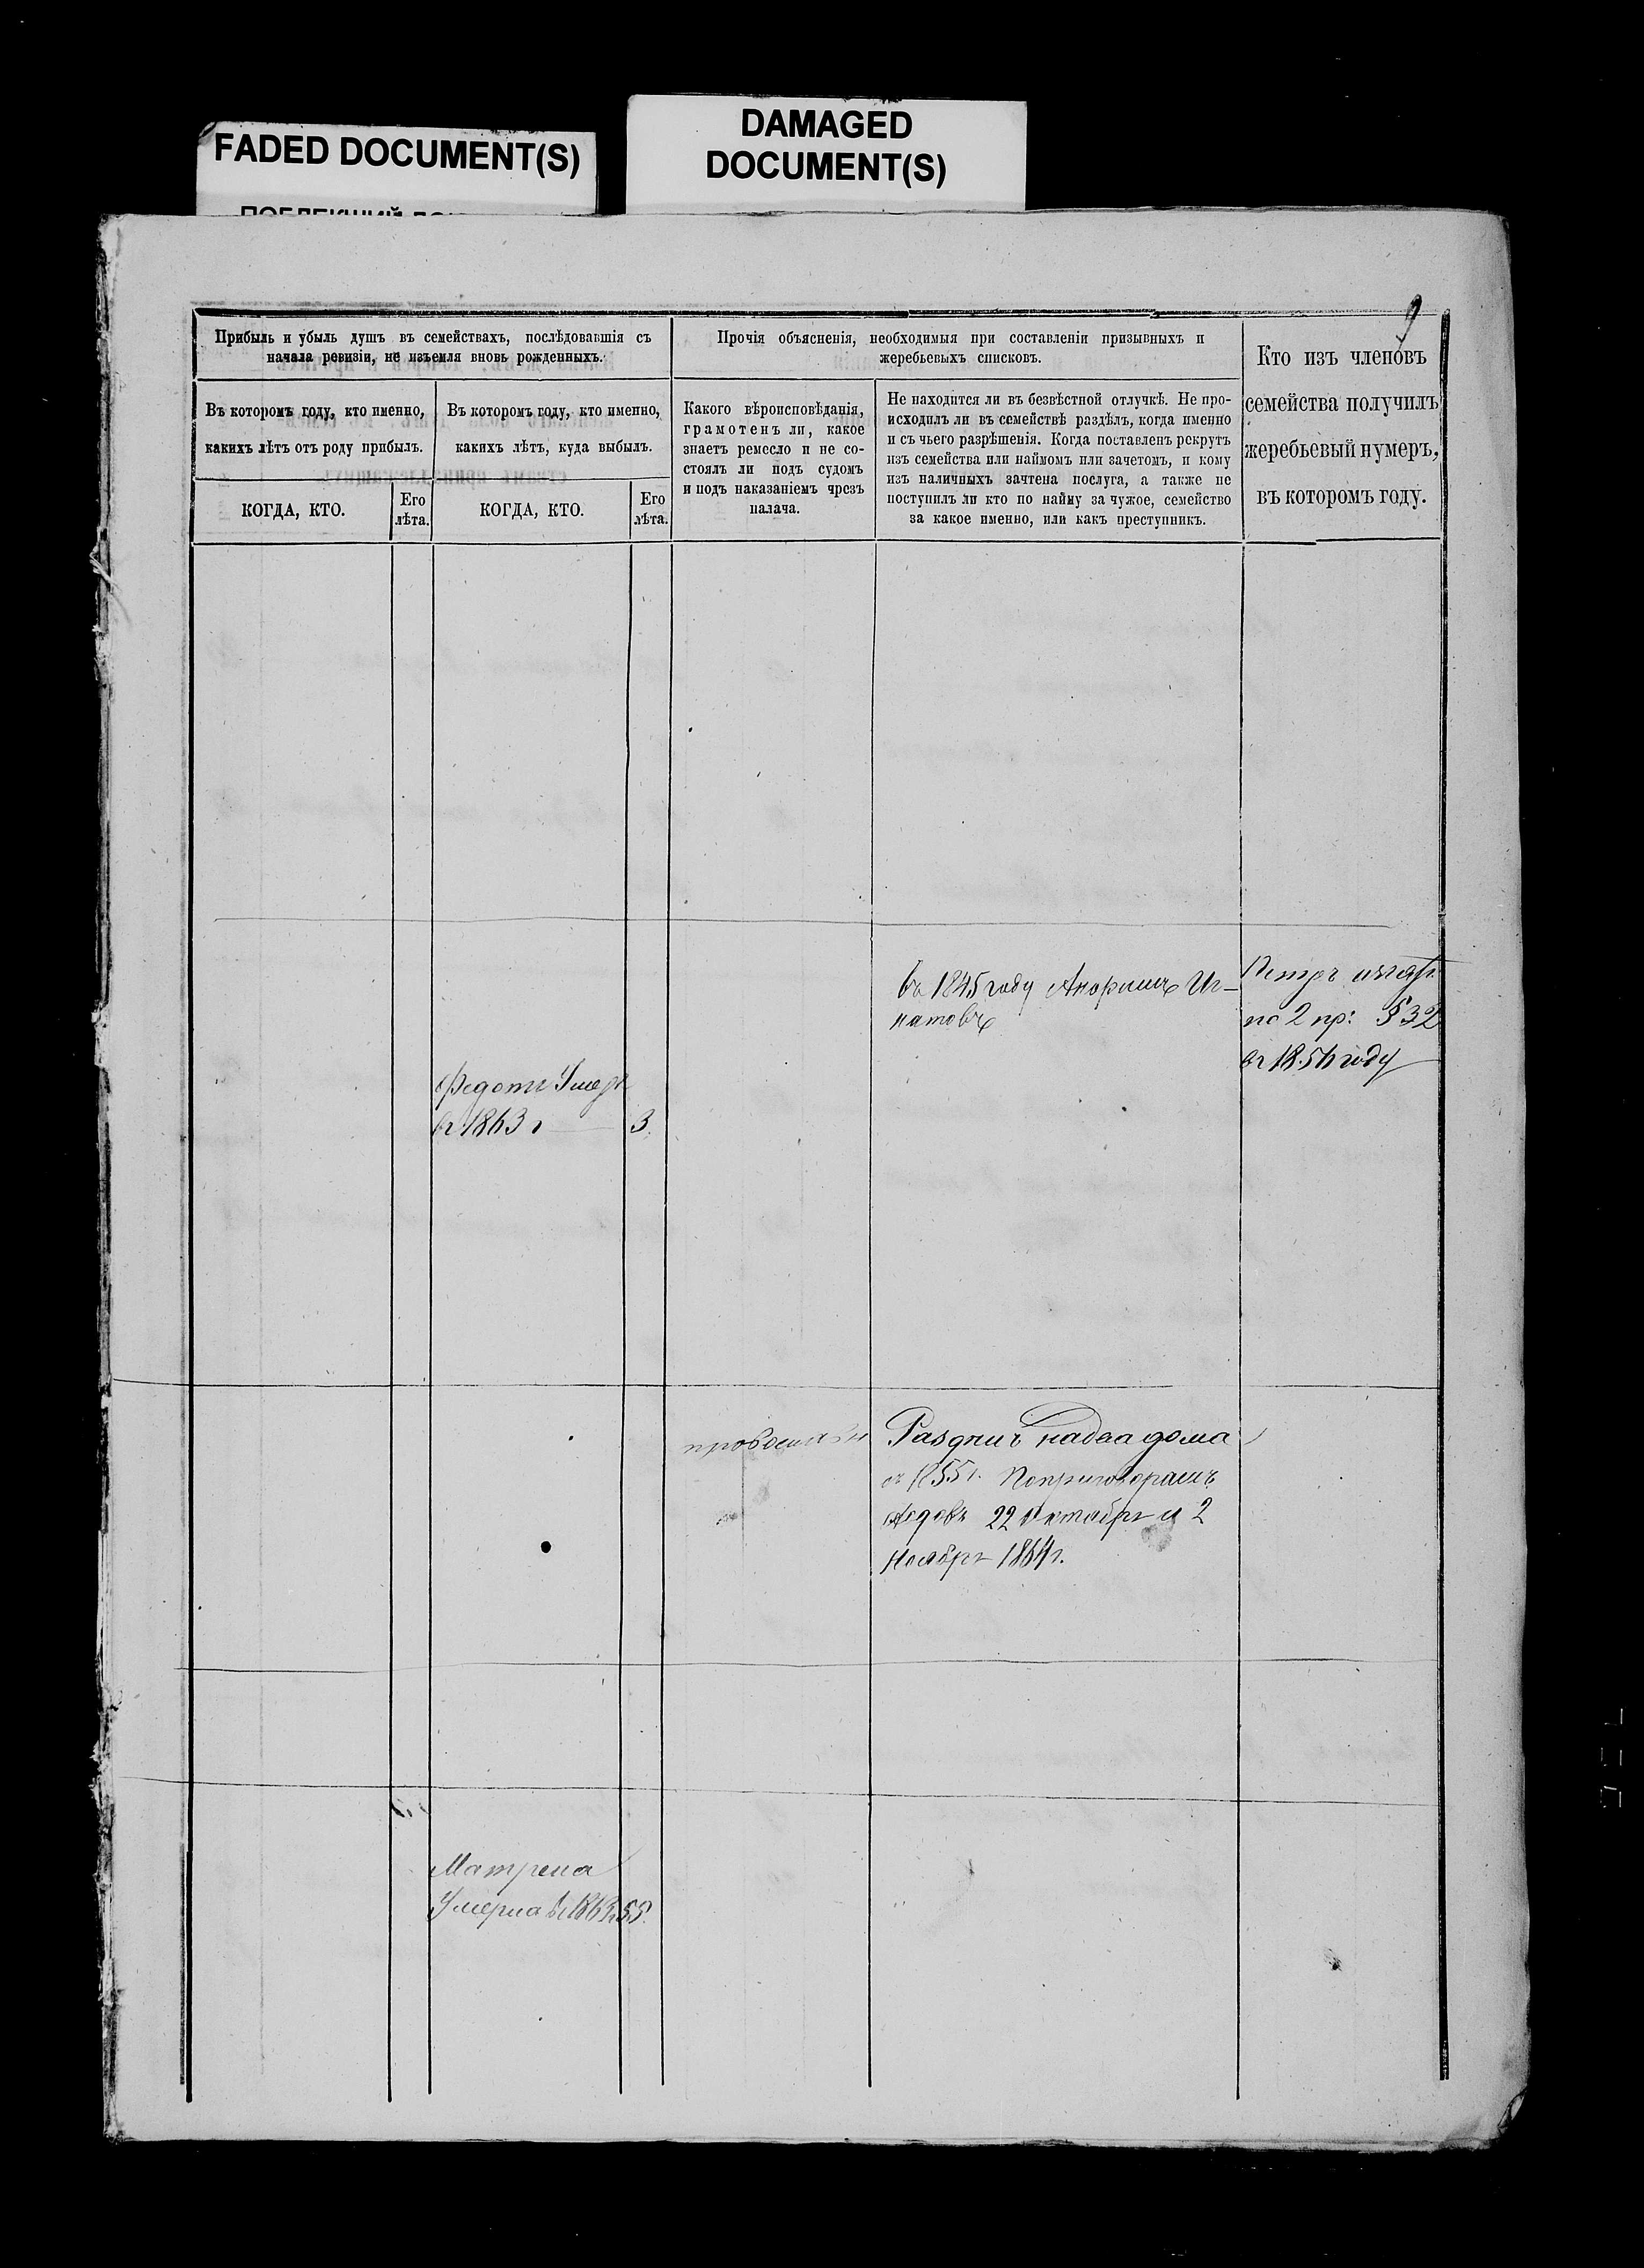 FADED DOCUMENT(S)
DAMAGED
DOCUMENT(S)
9
Прибыль и убыль душъ въ семействахъ, послѣдовавшія съ
начала ревизіи, не изъемля вновь рожденныхъ.
Прочія объясненія, необходимыя при составленіи призывныхъ и
жеребьевыхъ списковъ.
Кто изъ членовъ
семейства получилъ
жеребьевый нумеръ,
въ которомъ году.
Въ которомъ году, кто именно,
какихъ лѣтъ отъ роду прибылъ.
Въ которомъ году, кто именно,
какихъ лѣтъ, куда выбылъ.
Какого вѣроисповѣданія,
грамотенъ ли, какое
знаетъ ремесло и не со-
стоялъ ли подъ судомъ
и подъ наказаніемъ чрезъ
палача.
Не находится ли въ безвѣстной отлучкѣ. Не про-
исходилъ ли въ семействѣ раздѣлъ, когда именно
и съ чьего разрѣшенія. Когда поставленъ рекрутъ
изъ семейства или наймомъ или зачетомъ, и кому
изъ наличныхъ зачтена послуга, а также не
поступилъ ли кто по найму за чужое, семейство
за какое именно, или какъ преступникъ.
КОГДА, КТО.
Его
лѣта.
КОГДА, КТО.
Его
лѣта.
въ 1845 году Иг-
натовъ
Петръ
по 2 пр: § 32
въ году
Федотъ Умеръ
въ 1863 г 3
на два дома
въ 1855 г. По приговорамъ
22 Октября и 2
Ноября 1864 г.
Матрена
Умерла въ 1863 г 55.